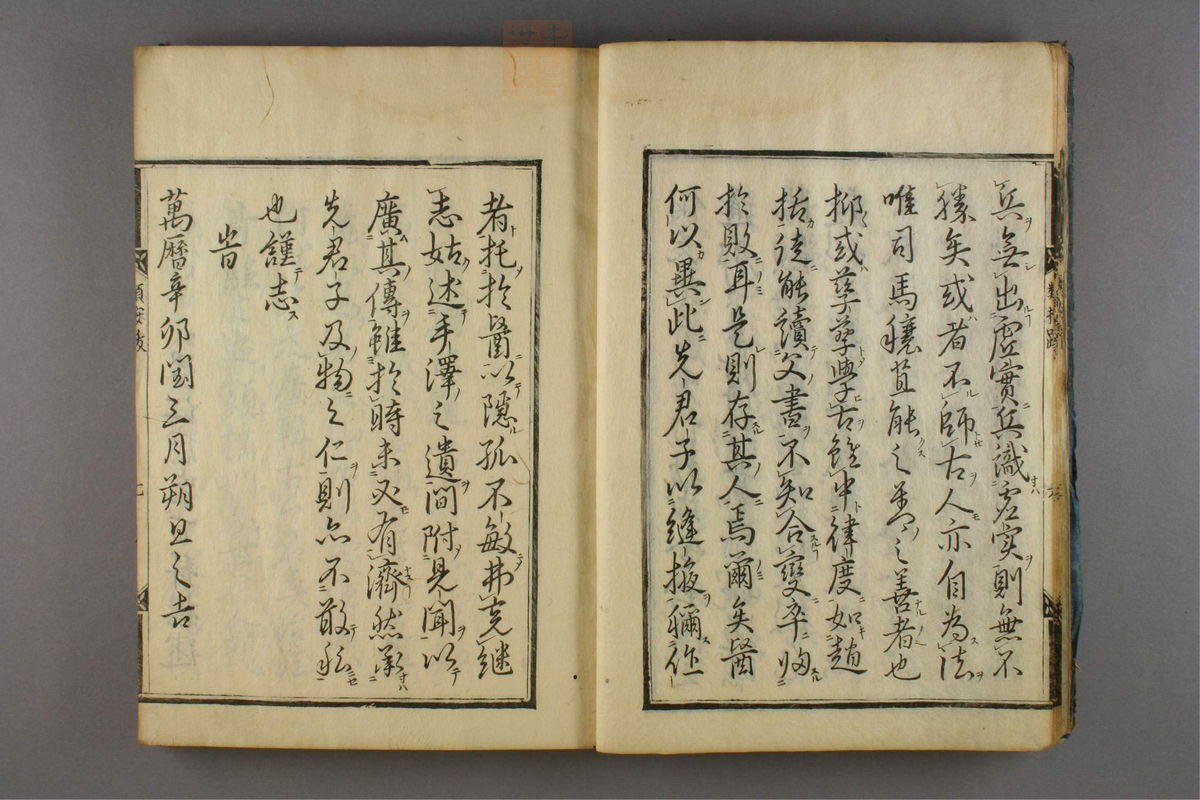 兵無出虚實兵識虚实則無不
勝矣或者不師古人亦自為法
唯司馬穰苴能之兵之善者也
抑或孳孳學古雖中律度如趙
括徒能讀父書不知合變卒归
於敗耳是則存其人焉爾矣醫
何以異此先君子以縫掖稱作
者托於醫以隱孤不敏弗克继
志姑述手澤之遺間附見聞以
廣其傳雖於時未必有濟然承
先君子及物之仁則亦不敢私
也謹志
旹
萬曆辛卯閏三月朔旦之吉